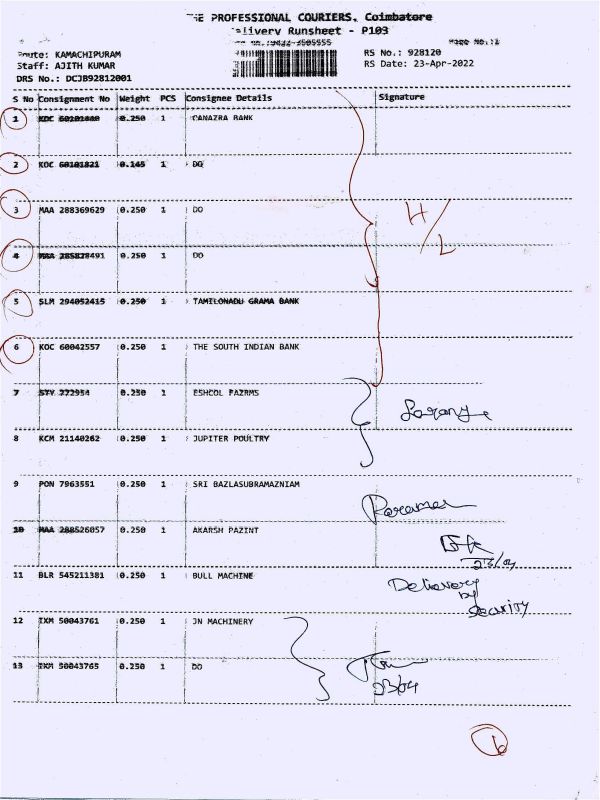 THE PROFESSIONAL COURIERS, Coimbatore
Delivery Runsheet - P103
Page No.:1
Route: KAMACHIPURAM
RS No.: 928120
Staff: AJITH KUMAR
RS Date: 23-Apr-2022
DRS No.: DCJB92812001
S No Consignment No Weight PCS Consignee Details Signature
1 KOC 0.250 1 CANAZRA BANK
2 KOC 60101821 0.145 1 DO
3 MAA 288369629 0.250 1 DO
H/L
4 MAA 285828491 0.250 1 DO
5 SLM 294052415 0.250 1 TAMILONADU GRAMA BANK
6 KOC 60042557 0.250 1 THE SOUTH INDIAN BANK
7 STY 772954 0.250 1 ESHCOL FAZRMS
8 KCM 21140262 0.250 1 JUPITER POULTRY
9 PON 7963551 0.250 1 SRI BAZLASUBRAMAZNIAM
10 MAA 288526057 0.250 1 AKARSH PAZINT
23/04
11 BLR 545211381 0.250 1 BULL MACHINE
Delivery
by
Security
12 IXM 50043761 0.250 1 JN MACHINERY
13 IXM 50043765 0.250 1 DO
23/04
6